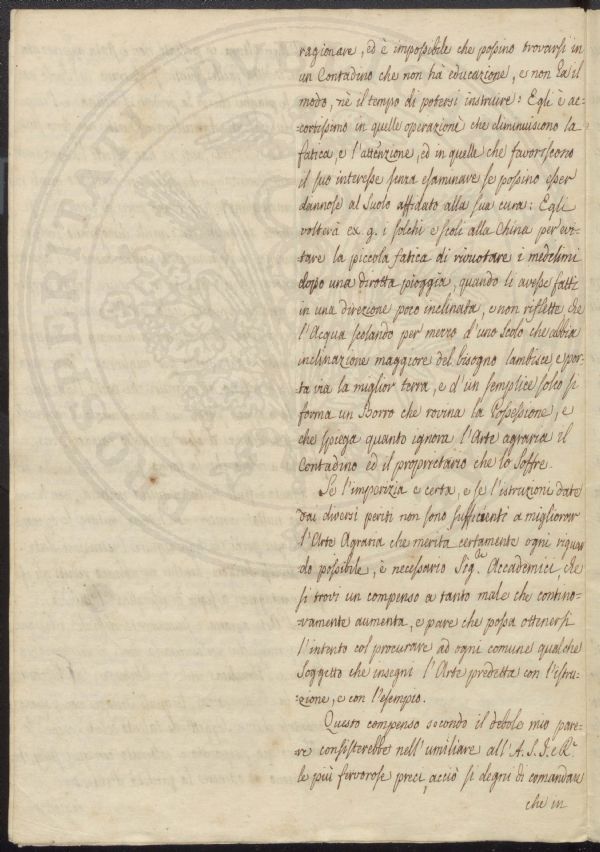 ragionare, ed è impossibile che possino trovarsi in
un Contadino che non hà educazione, e non hà il
modo, nè il tempo di potersi instruire: Egli è ac-
-cortissimo in quelle operazioni che diminuiscono la
fatica e l'attenzione, ed in quelle che favoriscono
il suo interesse senza esaminare se possino esser
dannose al Suolo affidato alla sua cura: Egli
volterà ex. g. i solchi e scoli alla China per evi-
-tare la piccola fatica di rivuotare i medesimi
dopo una dirotta pioggia, quando li avesse fatti
in una direzione poco inclinata, e non riflette che
l'Acqua scolando per mezzo d'uno Scolo che abbia
inclinazione maggiore del bisogno lambisce e por-
-ta via la miglior terra, e d'un semplice solco si
forma un Borro che rovina la Possessione, e
che spiega quanto ignora l'Arte agraria il
Contadino ed il proprietario che lo Soffre.
Se l'imperizia e certa, e se l'istruzioni date
dai diversi periti non sono sufficienti a migliorar
l'Arte Agraria che merita certamente ogni riguar
do possibile, è necessario Sig.ri Accademici, che
si trovi un compenso a tanto male che contino-
-vamente aumenta, e pare che possa ottenersi
l'intento col procurare ad ogni comune qualche
Soggetto che insegni l'Arte predetta con l'istru-
-zione, e con l'esempio.
Questo compenso secondo il debole mio pare-
re consisterebbe nell'umiliare all'A. S. I. e R.
le più fervorose preci, acciò si degni di comandare
che in